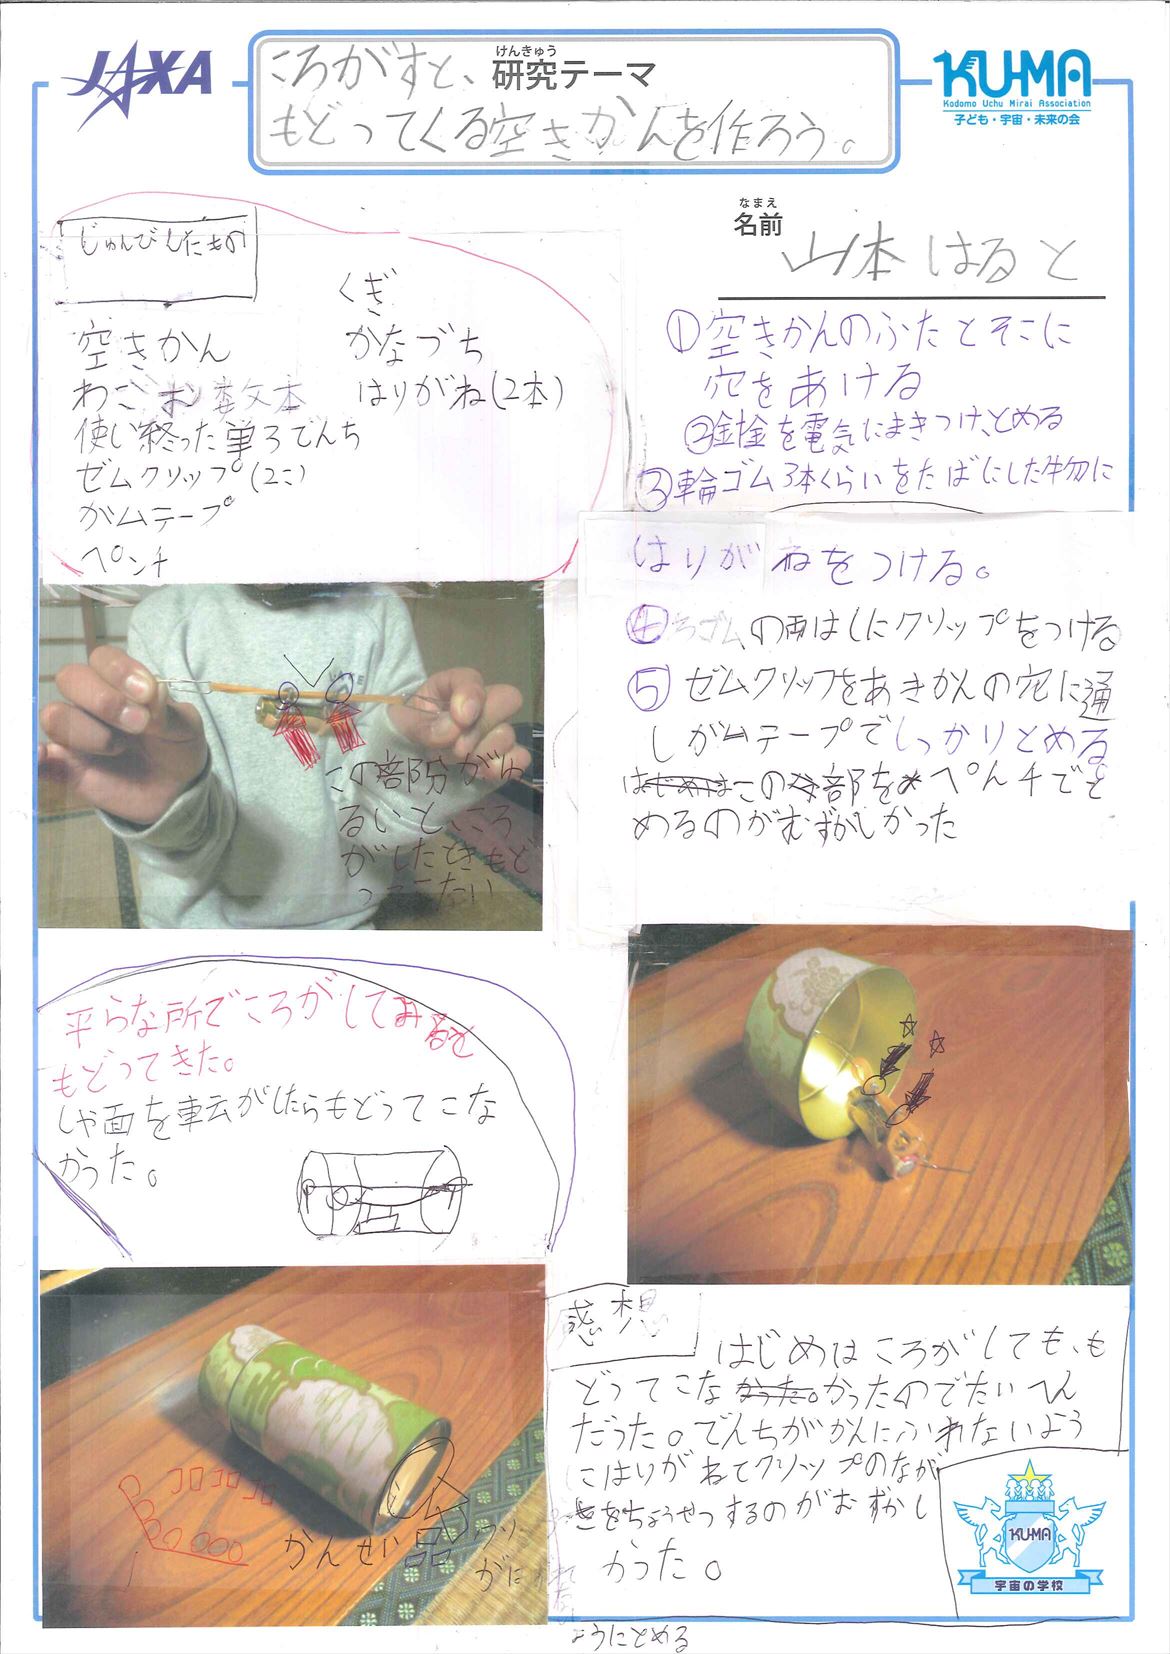 JAXA
ころがすと、
けんきゅう
研究テーマ
もどってくる空きかんを作ろう。
KU-MA
Kodomo Uchu Mirai Association
子ども・宇宙・未来の会
なまえ
名前
山本 はると
じゅんびしたもの
空きかん
わごム 数本
使い終った単3でんち
ゼムクリップ(2こ)
ガムテープ
ペンチ
くぎ
かなづち
はりがね(2本)
①空きかんのふたとそこに
穴をあける
③輪ゴム3本くらいをたばにした物に
はりがねをつける。
ゴムの両はしにクリップをつける
⑤ゼムクリップをあきかんの穴に通
しガムテープでしっかりとめる
この部をペンチでと
めるのがむずかしかった
この部分がゆ
るいと、ころ
がしたときもど
ってこない
平らな所でころがしてみると
もどってきた。
しゃ面を転がしたらもどってこな
かった。
コロコロコロ
かんせい品
感想
はじめはころがしても、も
どってこなかったのでたいへん
だった。でんちがかんにふれないよう
にはりがねとクリップのなが
さをちょうせつするのがむずかし
かった。
ようにとめる
KU-MA
宇宙の学校